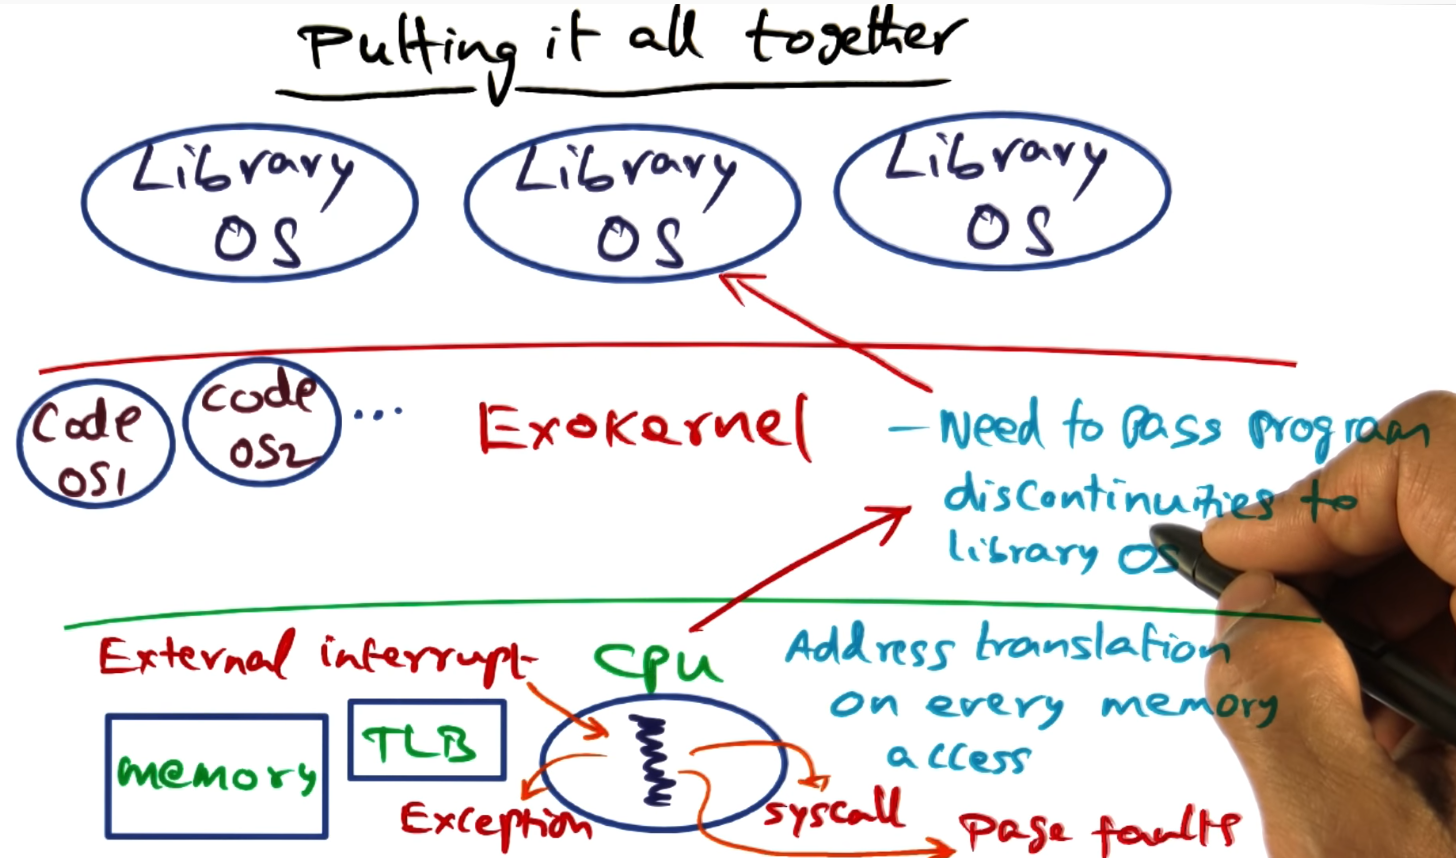 Putting it all together
Library
OS
Library
OS
Library
OS
Code
OS1
code
OS2
...
Exokernel
- Need to pass program
discontinuities to
library OS
External interrupt
CPU
Address translation
on every memory
access
memory
TLB
Exception
syscall
Page faults